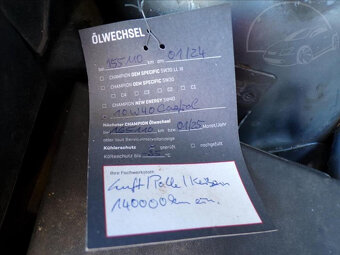 ÖLWECHSEL
bei 155110 km am 01/24
CHAMPION OEM SPECIFIC 5W30 LL III
CHAMPION OEM SPECIFIC 5W30
C1 C2 C3 C4 C5
CHAMPION NEW ENERGY 5W40
10W40
Nächster CHAMPION Ölwechsel
165110 km 01/25 Monat/Jahr
oder laut Serviceintervallanzeige
Kühlerschutz geprüft nachgefüllt
Kälteschutz bis
Ihre Fachwerkstatt:
Luft/Polle/
140000km